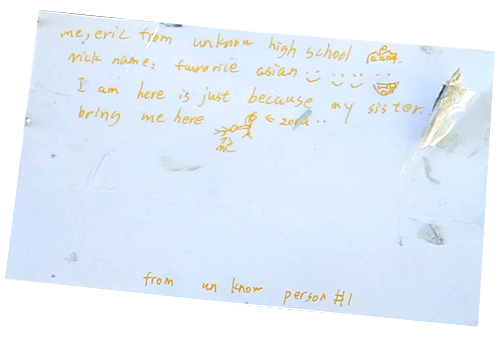 me, eric from unknow high school
nick name: favorite asian
I am here is just because my sister.
bring me here ← zora..
me
from un know person #1